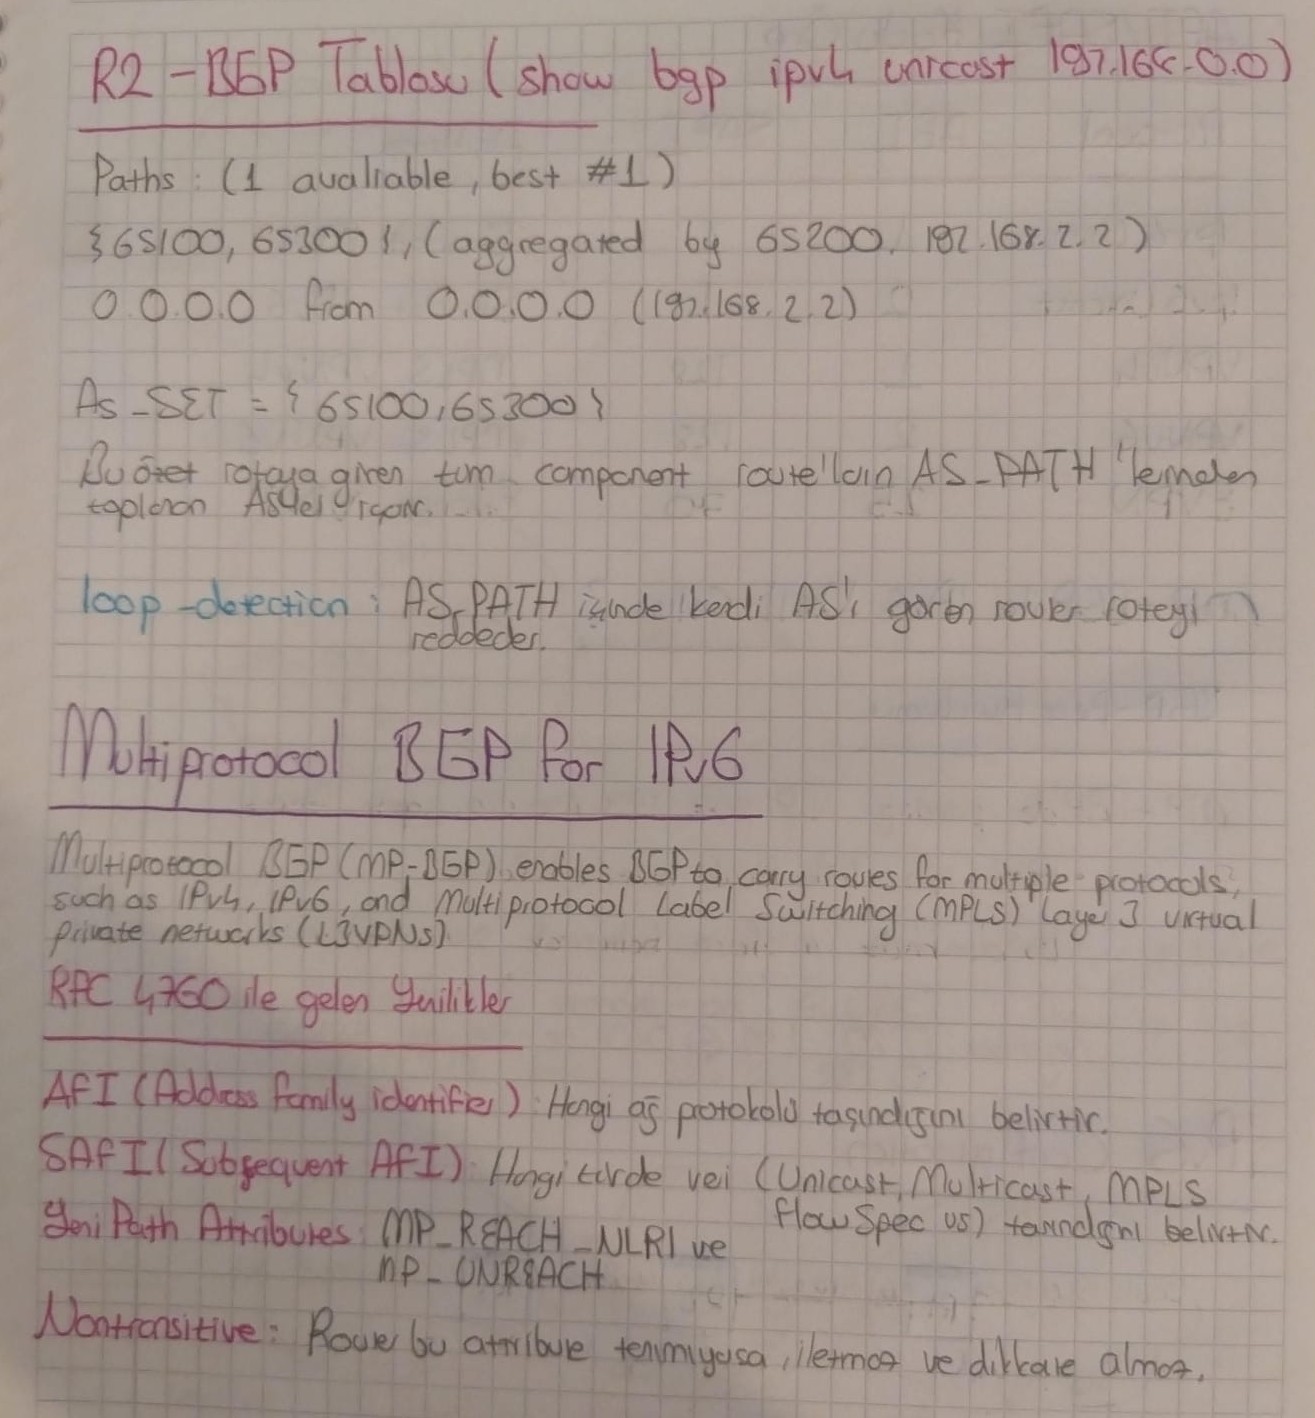 R2-BGP Tablosu (show bgp ipv4 unicast 192.168.0.0)
Paths : (1 avaliable, best #1)
{65100, 65300}, (aggregated by 65200. 192.168.2.2)
0.0.0.0 from 0.0.0.0 (192.168.2.2)
As_SET = {65100,65300}
Bu özet rotaya giren tüm component route'ların AS_PATH 'lerinden
toplanan AS'leri
loop-detection : AS_PATH içinde kendi AS'ı gören router rotayı
reddeder.
Multiprotocol BGP for IPv6
Multiprotocol BGP (MP-BGP) enables BGP to carry routes for multiple protocols,
such as IPv4, IPv6, and Multiprotocol Label Switching (MPLS) Layer 3 virtual
private networks (L3VPNs)
RFC 4760 ile gelen Yenilikler
AFI (Address family identifier) : Hangi ağ protokolü taşındığını belirtir.
SAFI (Subsequent AFI) : Hangi türde veri (Unicast, Multicast, MPLS
flowSpec vs) tanındığnı belirtir.
Yeni Path Attributes : MP_REACH_NLRI ve
MP_UNREACH
Nontransitive : Router bu attribute tanımıyosa, iletmez ve dikkate almaz.